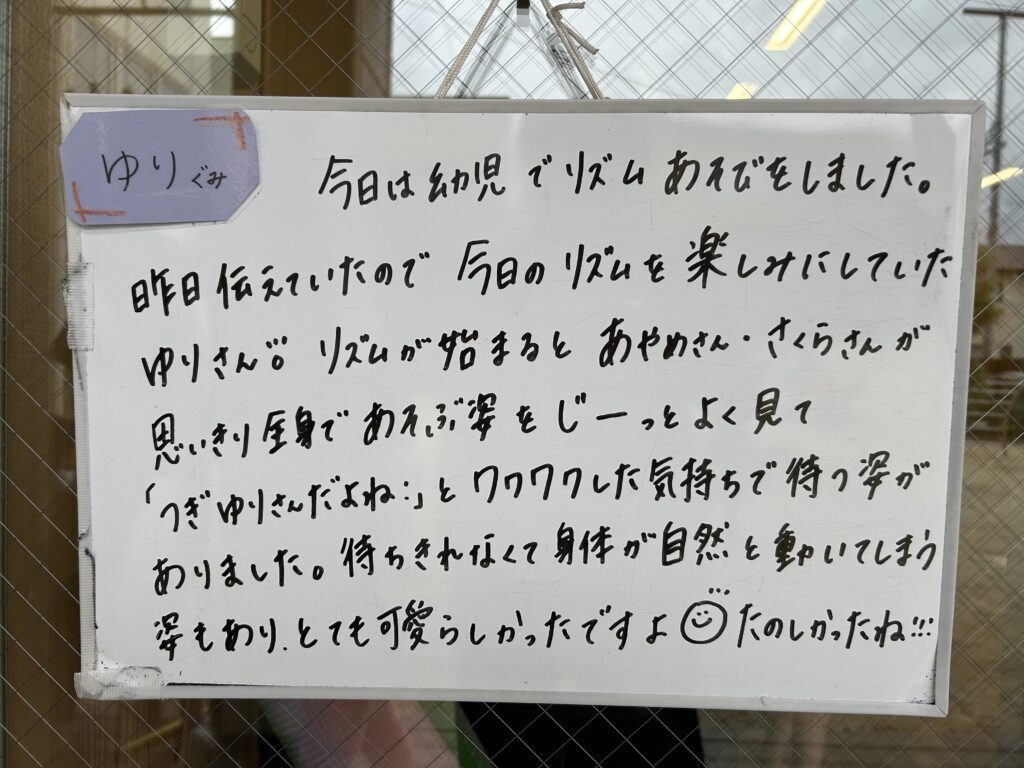 ゆりぐみ
今日は幼児でリズムあそびをしました。
昨日伝えていたので今日のリズムを楽しみにしていた
ゆりさん!! リズムが始まるとあやめさん・さくらさんが
思いきり全身であそぶ姿をじーっとよく見て
「つぎゆりさんだよね!」とワクワクした気持ちで待つ姿が
ありました。待ちきれなくて身体が自然と動いてしまう
姿もあり、とても可愛らしかったですよ たのしかったね!!!